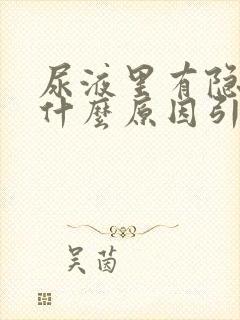 尿液里有隐
什麼原因引
吴茵